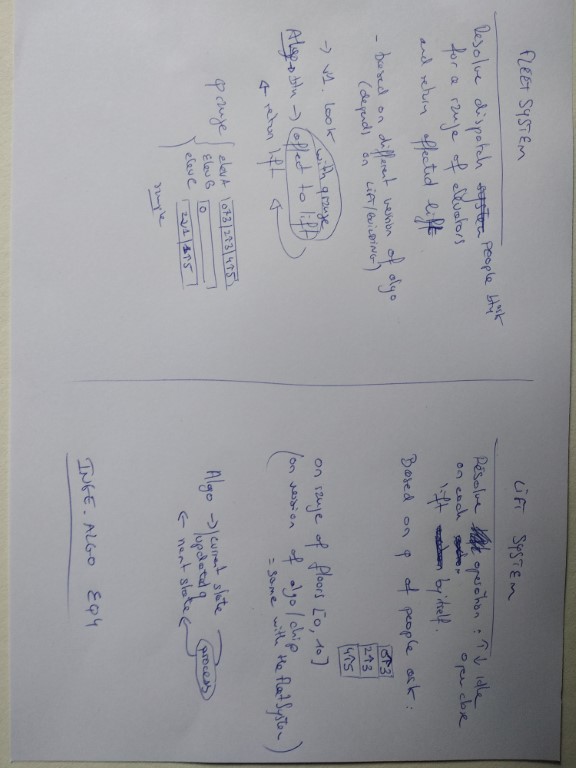 FLEET SYSTEM
Resolve dispatch system people btn ask
for a range of elevators
and return affected lift
- based on different version of algo
(depends on LIFT/BUILDING)
-> v1. look
with q range
Algo -> btn -> affect to lift
<- return lift
q range
elevA 0↑3|2↑3|4↑5
elevB 0
elevC 2↓1|1↑5
LIFT SYSTEM
Resolve operation : ↑ ↓ idle
on each open close
lift by itself.
Based on q of people ask :
0↑3
2↑3
4↑5
on range of floors [0, 10]
(on version of algo/chip
= same with the FleetSystem)
Algo -> current state
updated q process
<- next state
INGE. ALGO EQ4